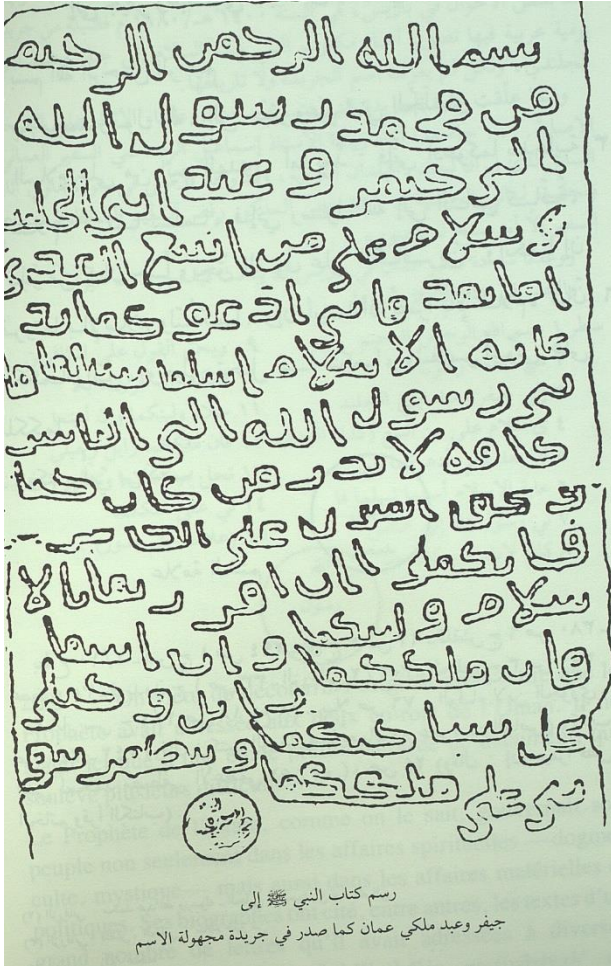 بسم الله الرحمن الرحيم
من محمد رسول الله
الى جيفر وعبد ابني الجلند
ى سلام على من اتبع الهدى
اما بعد فاني ادعوكما بد
عاية الاسلام اسلما تسلما فا
ني رسول الله الى الناس
كافة لانذر من كان حيا
و يحق القول على الكافرين
فانكما ان اقررتما بالا
سلام وليتكما وان ابيتما
فان ملككما زايل وخيلي
تحل بساحتكما وتظهر نبو
تي على ملككما
رسم كتاب النبي ﷺ إلى
جيفر وعبد ملكي عمان كما صدر في جريدة مجهولة الاسم